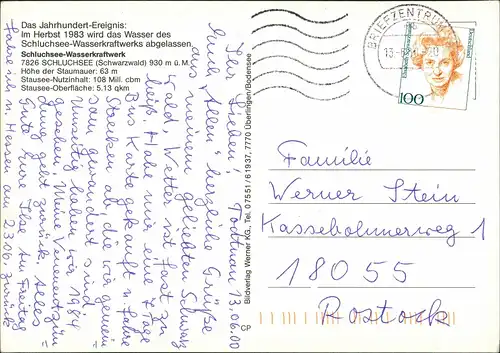 Das Jahrhundert-Ereignis:
Im Herbst 1983 wird das Wasser des
Schluchsee-Wasserkraftwerks abgelassen
Schluchsee-Wasserkraftwerk
7826 SCHLUCHSEE (Schwarzwald) 930 m ü.M.
Höhe der Staumauer: 63 m
Stausee-Nutzinhalt: 108 Mill. cbm
Stausee-Oberfläche: 5.13 qkm
Ihr Lieben! Todtnau 13.06.00
Allen herzliche Grüße
aus meinem geliebten Schwarz
wald, Wetter ist fast zu
heiß. Habe mir eine 7 Tage
Bus Karte gekauft u. fahre
Strecken ab die wir gemein
sam gewandert sind.
Unzählig haben wir 1984
gesehen. Meine Venenentzün
dung geht zurück. Alles
Gute Eure Ilse Am Freitag
Fahre ich n. Hessen am 23.06. zurück
Bildverlag Werner KG., Tel. 07551/61937, 7770 Überlingen/Bodensee
BRIEFZENTRUM
Deutschland
100
Familie
Werner Stein
Kassebohmerweg 1
18055
Rostock